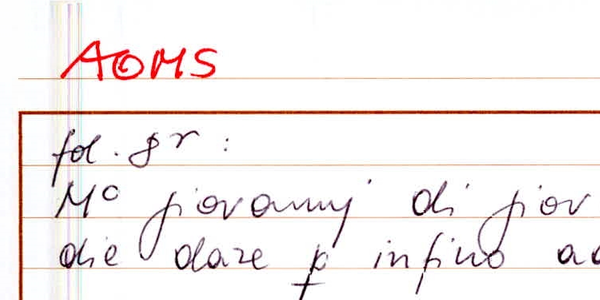 AOMS
fol. 8r:
Mo giovannj di giov
die dare p infino ad